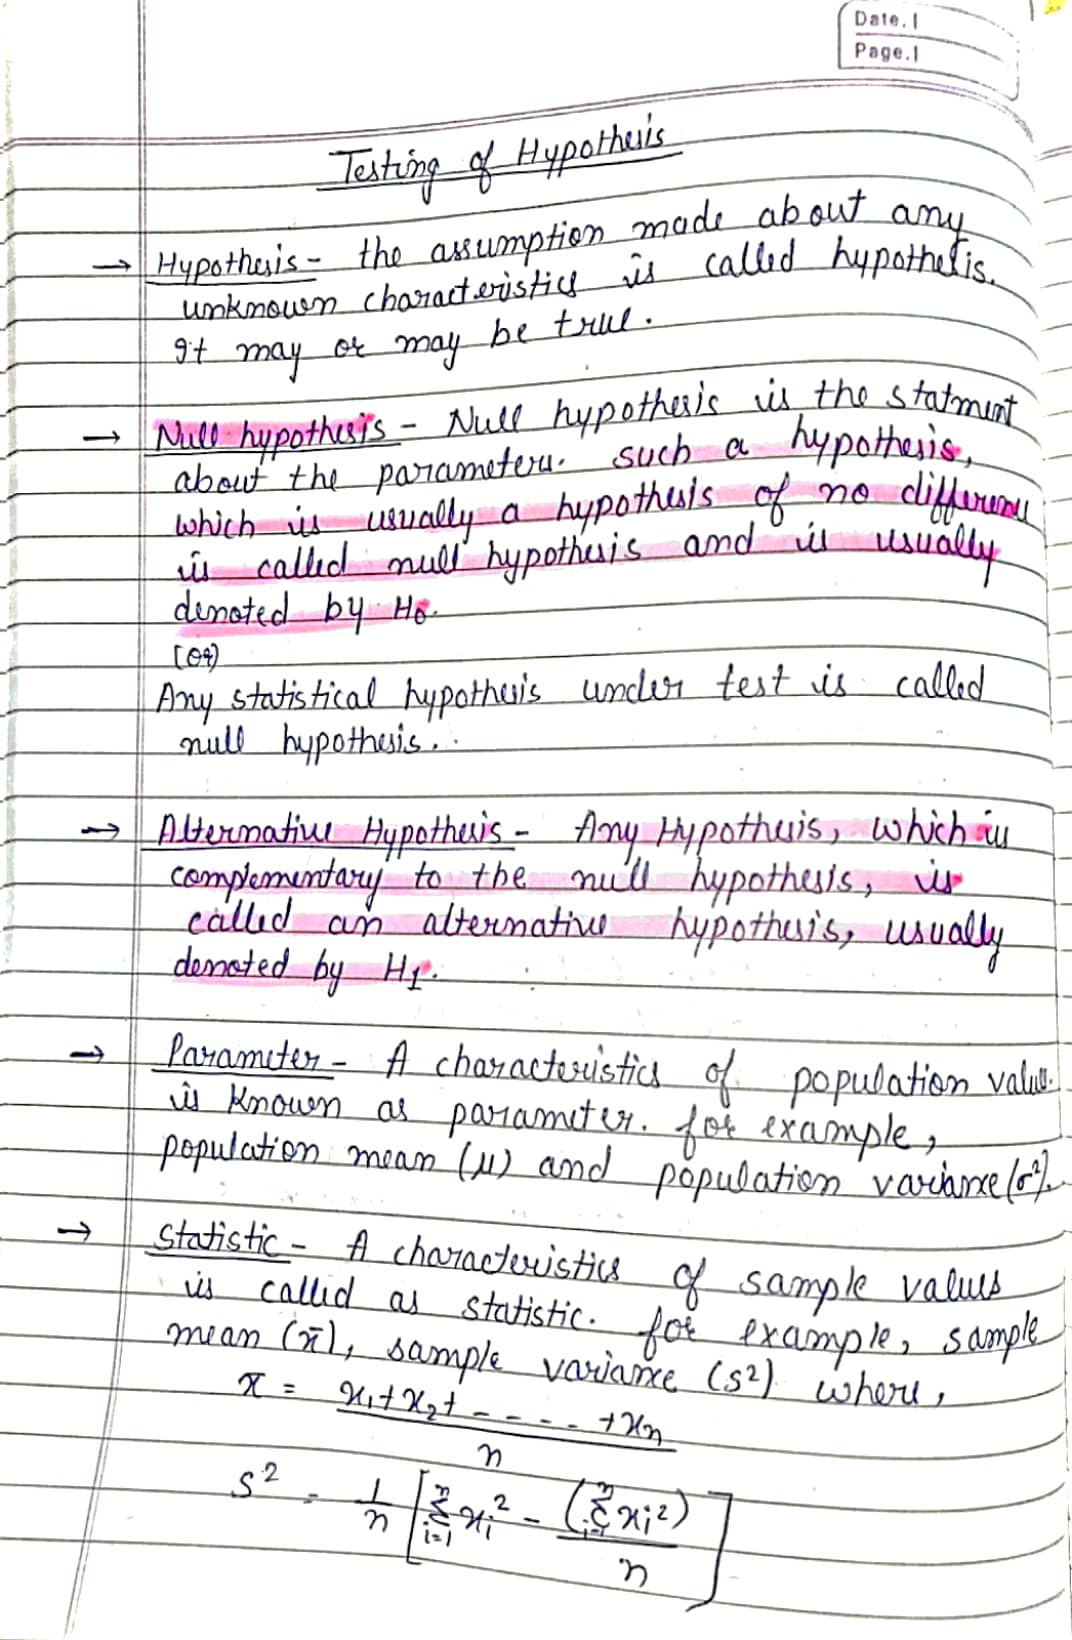 Date.
Page.
Testing of Hypothesis
→ Hypothesis - the assumption made about any
unknown characteristics is called hypothesis.
It may or may be true.
→ Null hypothesis - Null hypothesis is the statment
about the parameters. such a hypothesis,
which is usually a hypothesis of no difference
is called null hypothesis and is usually
denoted by H₀.
(or)
Any statistical hypothesis under test is called
null hypothesis.
→ Alternative Hypothesis - Any Hypothesis, which is
complementary to the null hypothesis, is
called an alternative hypothesis, usually
denoted by H₁.
→ Parameter - A characteristics of population value
is known as parameter. for example,
population mean (μ) and population variance (σ²).
→ Statistic - A characteristics of sample values
is called as statistic. for example, sample
mean (x̄), sample variance (s²) where,
x̄ = x₁+x₂+ - - - - +xₙ
n
s² = 1/n [ Σⁿᵢ₌₁ xᵢ² - (Σⁿᵢ₌₁ xᵢ²)
n ]